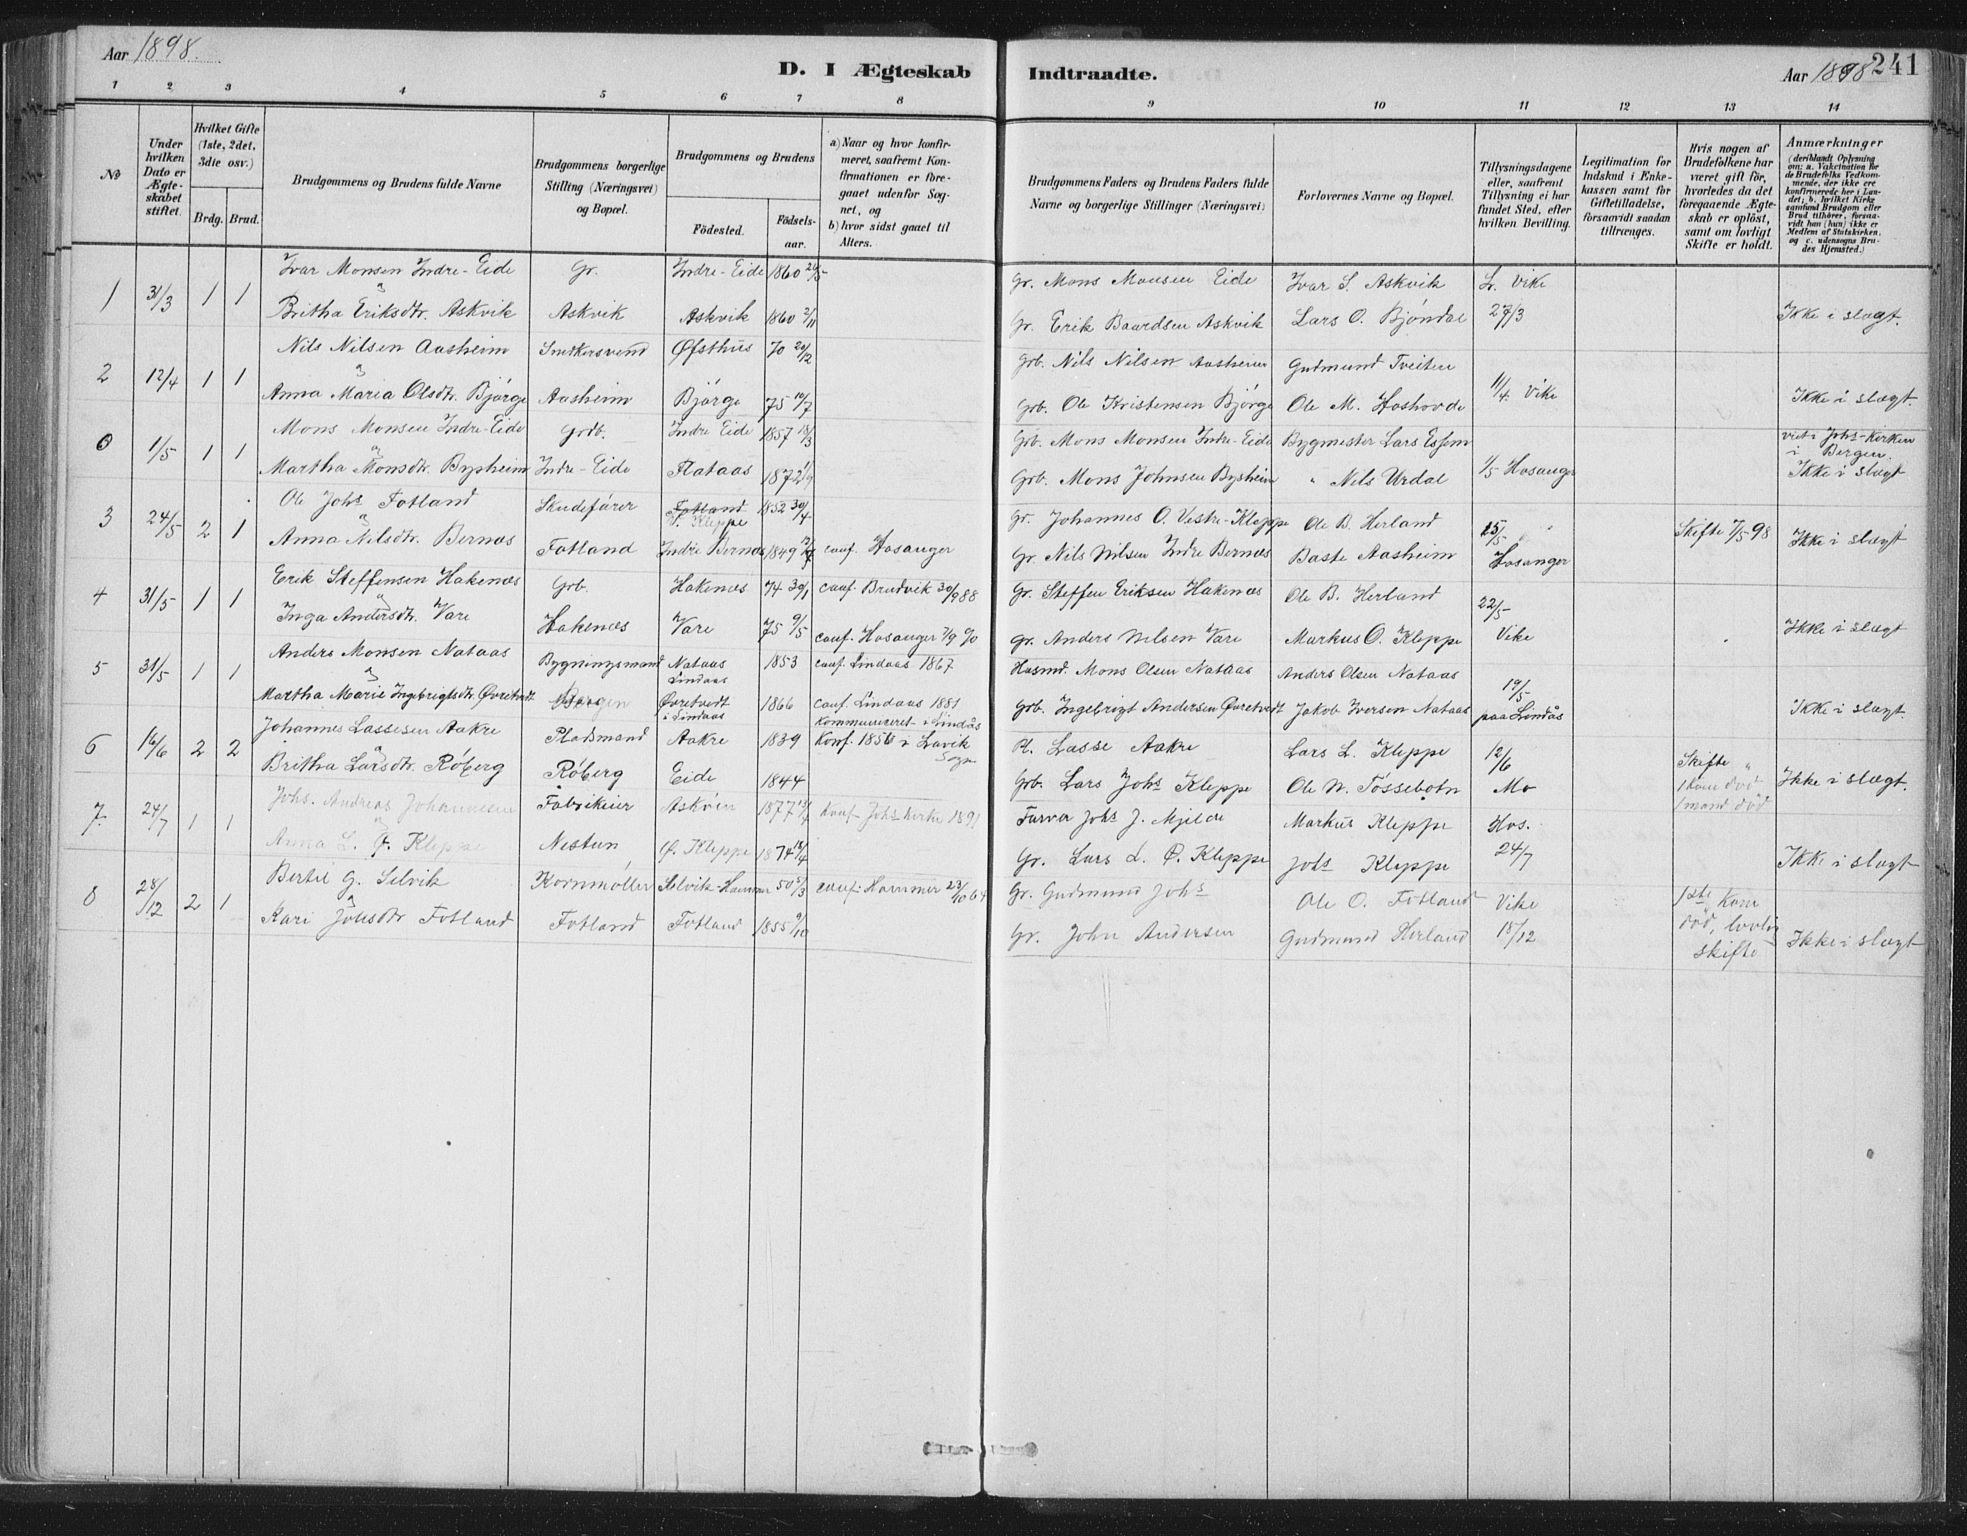 Aar 1898.
D. I Ægteskab Indtraadte.
Aar 1898 241
1 2 3 4 5 6 7 8 9 10 11 12 13 14
№
Under hvilken Dato er Ægteskabet stiftet.
Hvilket Gifte (1ste, 2det, 3die osv.)
Brdg. Brud.
Brudgommens og Brudens fulde Navne
Brudgommens borgerlige Stilling (Næringsvei) og Bopæl.
Brudgommens og Brudens
Fødested. Fødsels-aar.
a) Naar og hvor konfirmeret, saafremt Konfirmationen er foregaaet udenfor Sognet, og
b) hvor sidst gaaet til Alters.
Brudgommens Faders og Brudens Faders fulde Navne og borgerlige Stillinger (Næringsvei)
Forlovernes Navne og Bopæl.
Tillysningsdagene eller, saafremt Tillysning ei har fundet Sted, efter hvilken Bevilling.
Legitimation for Indskud i Enkekassen samt for Giftetilladelse, forsaavidt saadan tiltrænges.
Hvis nogen af Brudefolkene har været gift før, hvorledes da det foregaaende Ægteskab er opløst, samt om lovligt Skifte er holdt.
Anmærkninger (deriblandt Oplysning om: a. Vakcination for de Brudefolks Vedkommende, der ikke ere konfirmerede her i Landet; b. hvilket Kirkesamfund Brudgom eller Brud tilhører, forsaavidt han (hun) ikke er Medlem af Statskirken, og c. udensogns Brudes Hjemsted.)
Ivar Monsen Indre-Eide Gr. Indre-Eide 1860 26/5 Gr. Mons Monsen Eide Ivar S. Askvik Vike
1 31/3 1 1
Britha Eriksdtr. Askvik Askvik Askvik 1860 2/11 Gr. Erik Baardsen Askvik Lars O. Bjøndal 27/3 Ikke i slægt.
Nils Nilsen Aasheim Snedkersvend Øfsthus 70 20/12 Grb. Nils Nilsen Aasheim Gudmund Tveiten
2 12/4 1 1
Anna Maria Olsdtr. Bjørge Aasheim Bjørge 75 10/7 Grb. Ole Kristensen Bjørge Ole M. Hoshovde 11/4 Vike Ikke i slægt.
Mons Monsen Indre-Eide Grdb. Indre Eide 1857 18/3 Grb. Mons Monsen Indre-Eide Bygmester Lars viet i Johs-Kirken i Bergen.
0 1/5 1 1
Martha Monsdtr. Bysheim Indre-Eide Flataas 1872 1/9 Grb. Mons Johnsen Bysheim " Nils Urdal 1/5 Hosanger Ikke i slægt
Ole Johs Fotland Skudefører Fotland V. Kleppe 1852 30/4 Gr. Johannes O. Vestre-Kleppe Ole B. Herland 15/5
3 24/5 2 1
Anna Nilsdtr. Bernæs Fotland Indre Bernæs 1849 conf. Hosanger Gr. Nils Nilsen Indre Bernæs Baste Aasheim Hosanger Skifte 7/5 98 Ikke i slægt
Erik Steffensen Hakenæs Grb. Hakenæs 74 30/1 conf. Brudvik 30/9 88 Gr. Steffen Eriksen Hakenæs Ole B. Herland 22/5
4 31/5 1 1
Inga Andersdtr. Vare Hakenæs Vare 75 9/5 conf. Hosanger 7/9 90 Gr. Anders Nilsen Vare Markus O. Kleppe Vike Ikke i slægt
Anders Monsen Nataas Bygningsmand Nataas Lindaas 1853 conf. Lindaas 1867 Husmd. Mons Olsen Nataas Anders Olsen Nataas
5 31/5 1 1
Martha Marie Ingebrigtsdtr. Øvretvedt Bergen Øvretvedt i Lindaas 1866 conf. Lindaas 1881 kommuniceret i Lindås Grb. Ingebrigt Andersen Øvretvedt Jakob Iversen Nataas 19/5 paa Lindås Ikke i slægt.
Johannes Lassesen Aakre Pladsmand Aakre 1839 Konf. 1856 i Lavik Sogn Pl. Lasse Aakre Lars L. Kleppe 12/6
6 16/6 2 2
Britha Larsdtr. Røberg Røberg Eide 1844 Grb. Lars Johs Kleppe Ole N. Tossebotn Mo Skifte " 1 kone død 1 mand død Ikke i slægt.
Johs. Andreas Johannesen Fabrikeier Askøen 1877 Konf Johs kirke 1891 Farver Johs J. Mjelde Markus Kleppe Hos.
7. 24/7 1 1
Anna L. Ø. Kleppe Nestun Ø. Kleppe 1874 18/4 Gr. Lars L. Ø. Kleppe Johs Kleppe 24/7 Ikke i slægt
Bertil G. Selvik Kornmøller Selvik Hammer 50 5/3 conf. Hammer 23/10 64 Gr. Gudmund Johs Ole O. Fotland Vike
8 28/12 2 1
Kari Johsdtr Fotland Fotland Fotland 1855 9/10 Gr. John Andersen Gudmund Herland 18/12 1ste kone død, lovlig skifte Ikke i slægt